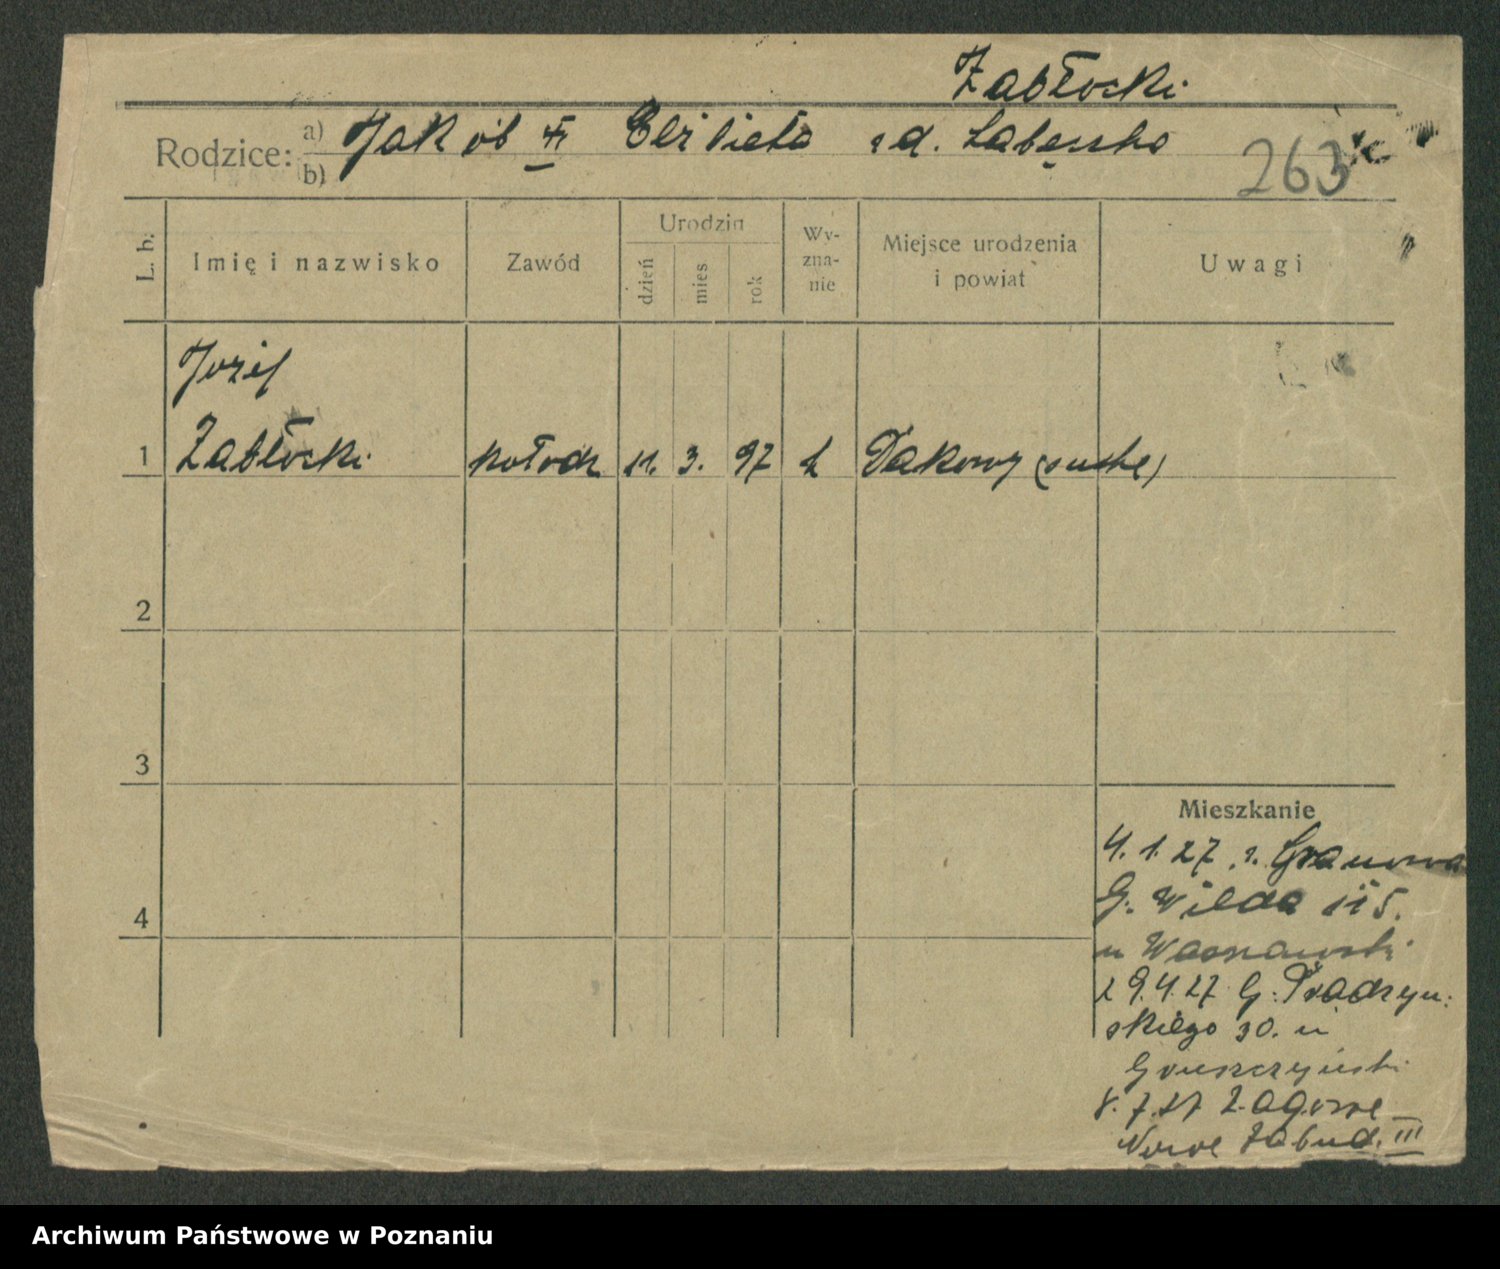 Zabłocki
Rodzice: a) Jakób i Elżbieta z d. Łabęska
b)
263
L. b. Imię i nazwisko Zawód Urodzin dzień mies rok Wyznanie Miejsce urodzenia i powiat Uwagi
Józef
1 Zabłocki kołodz 11. 3. 97 k Dakowy (suche)
2
3
4
Mieszkanie
4.1.27 z. Granowa
G. Wilda 115.
u Warszawski
29.4.27 G. Prądzyń-
skiego 30. u
Gruszczyński
8.7.27 Żagowe
Nowe Zabud. III
Archiwum Państwowe w Poznaniu